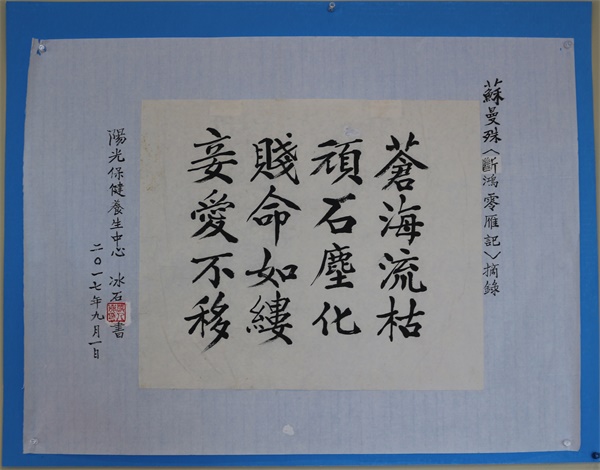 蘇曼殊〈斷鴻零雁記〉摘錄
蒼海流枯
頑石塵化
賤命如縷
妾愛不移
陽光保健養生中心 冰石書
二〇一七年九月一日